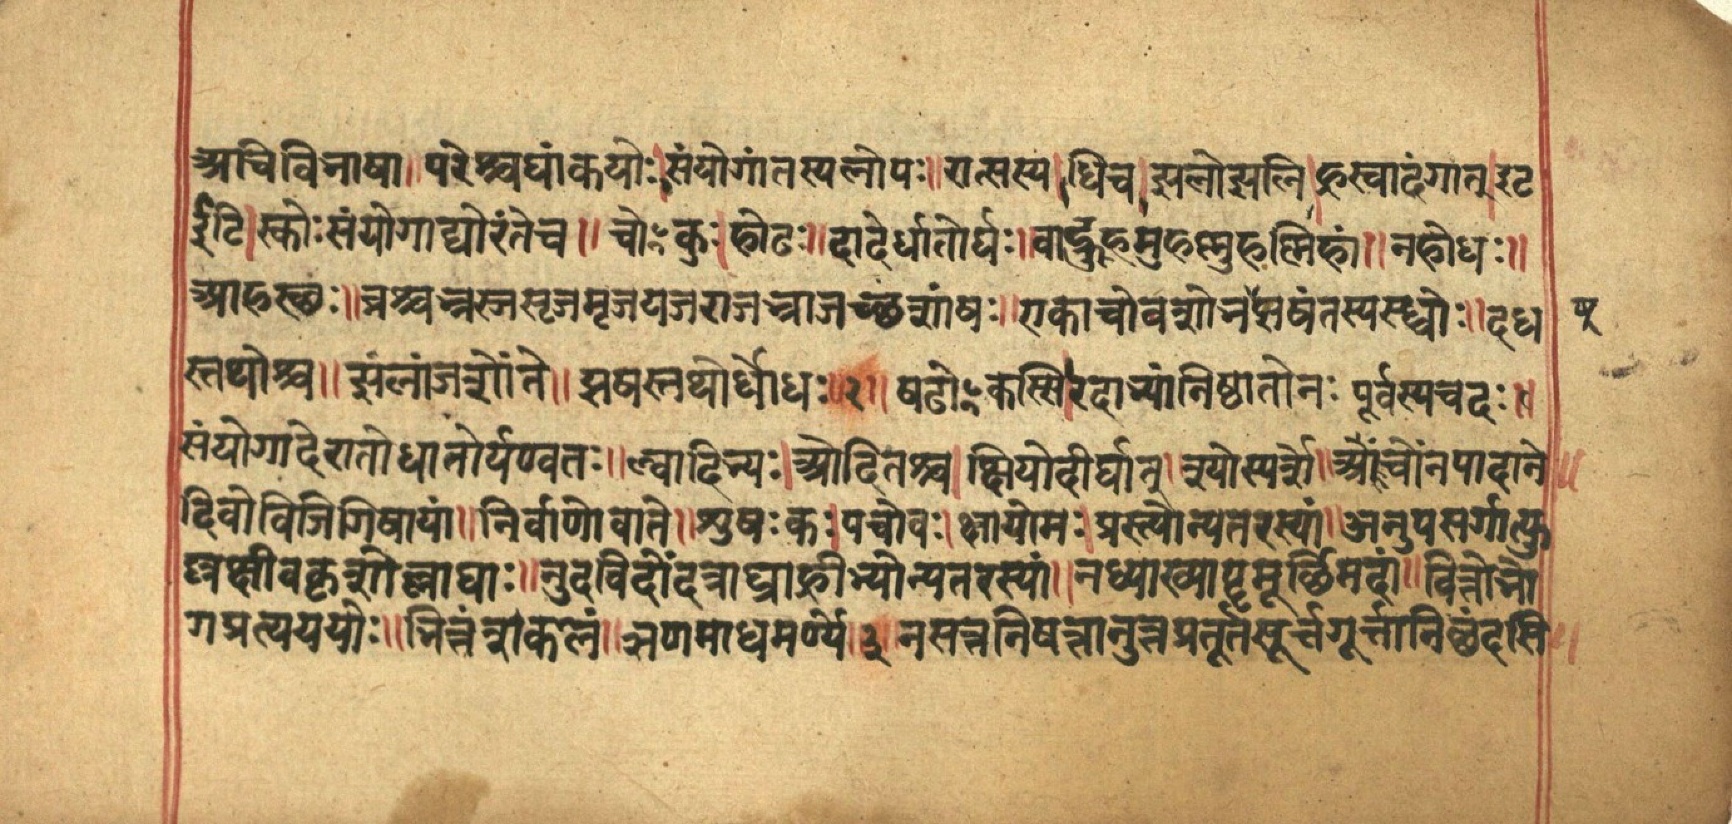 अचि विभाषा॥ परेश्च घांकयोः। संयोगांतस्य लोपः॥ रात्सस्य। धि च। झलो झलि। ह्रस्वादंगात्। इट
ईटि। स्कोः संयोगाद्योरंते च॥ चोः कुः। हो ढः॥ दादेर्धातोर्घः॥ वा द्रुहमुहष्णुहष्णिहां॥ नहो धः॥
आहस्थः॥ व्रश्चभ्रस्जसृजमृजयजराजभ्राजच्छशां षः॥ एकाचो बशो भष् झषंतस्य स्ध्वोः॥ दध
स्तथोश्च॥ झलां जशोंते॥ झषस्तथोर्धोधः॥२॥ षढोः कस्सि। रदाभ्यां निष्ठातो नः पूर्वस्य च दः॥
संयोगादेरातो धातोर्यण्वतः॥ ल्वादिभ्यः। ओदितश्च। क्षियो दीर्घात्। श्योस्पर्शे॥ अंचोनपादाने॥
दिवो विजिगिषायां॥ निर्वाणोवाते॥ शुषः कः। पचो वः। क्षायो मः। प्रस्त्योन्यतरस्यां॥ अनुपसर्गात्फु
ल्लक्षीबकृशोल्लाघाः॥ नुदविदोंदत्राघ्राह्रीभ्योन्यतरस्यां॥ न ध्याख्यापॄमूर्छिमदां॥ वित्तो भो
गप्रत्यययोः॥ भित्तं शकलं॥ ऋणमाधमर्ण्ये॥३॥ नसत्तनिषत्तानुत्तप्रतूर्त्तसूर्त्तगूर्त्तानि छंदसि॥
ष्